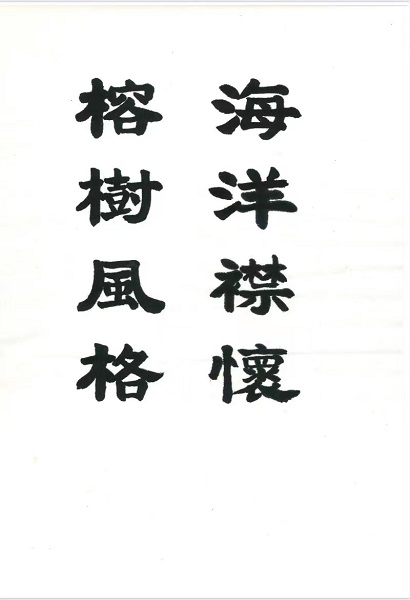 海洋襟懷
榕樹風格